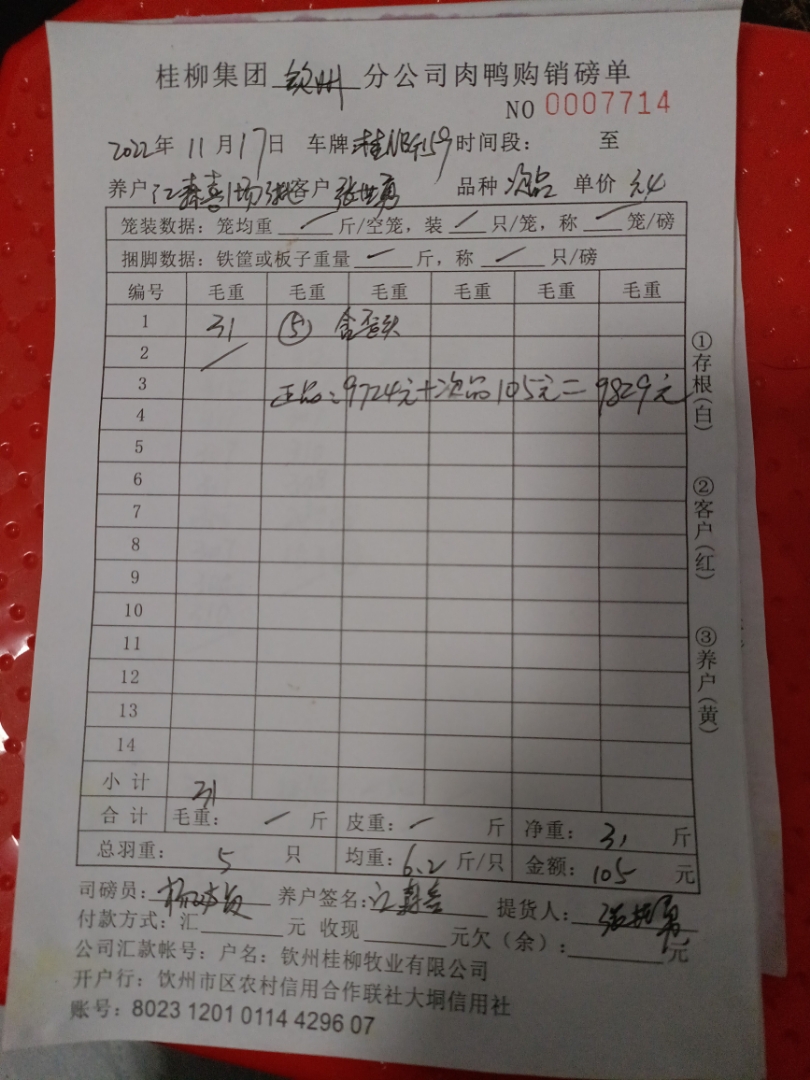 桂柳集团 钦州 分公司肉鸭购销磅单
NO 0007714
2022年 11月17日 车牌 桂 时间段： 至
养户 江寿喜1场 客户 张世勇 品种 次品 单价 元
笼装数据：笼均重 斤/空笼，装 只/笼，称 笼/磅
捆脚数据：铁筐或板子重量 斤，称 只/磅
编号 毛重 毛重 毛重 毛重 毛重 毛重
1 31 ⑤ 含歪头
2
3 正品：9724元+次品105元=9829元
4
5
6
7
8
9
10
11
12
13
14
小计 31
合计 毛重： 斤 皮重： 斤 净重：31 斤
总羽重： 5 只 均重：6.2 斤/只 金额：105 元
司磅员： 养户签名：江寿喜 提货人：
付款方式：汇 元 收现 元欠（余）： 元
公司汇款帐号：户名：钦州桂柳牧业有限公司
开户行：钦州市区农村信用合作联社大垌信用社
账号：8023 1201 0114 4296 07
①存根（白）
②客户（红）
③养户（黄）